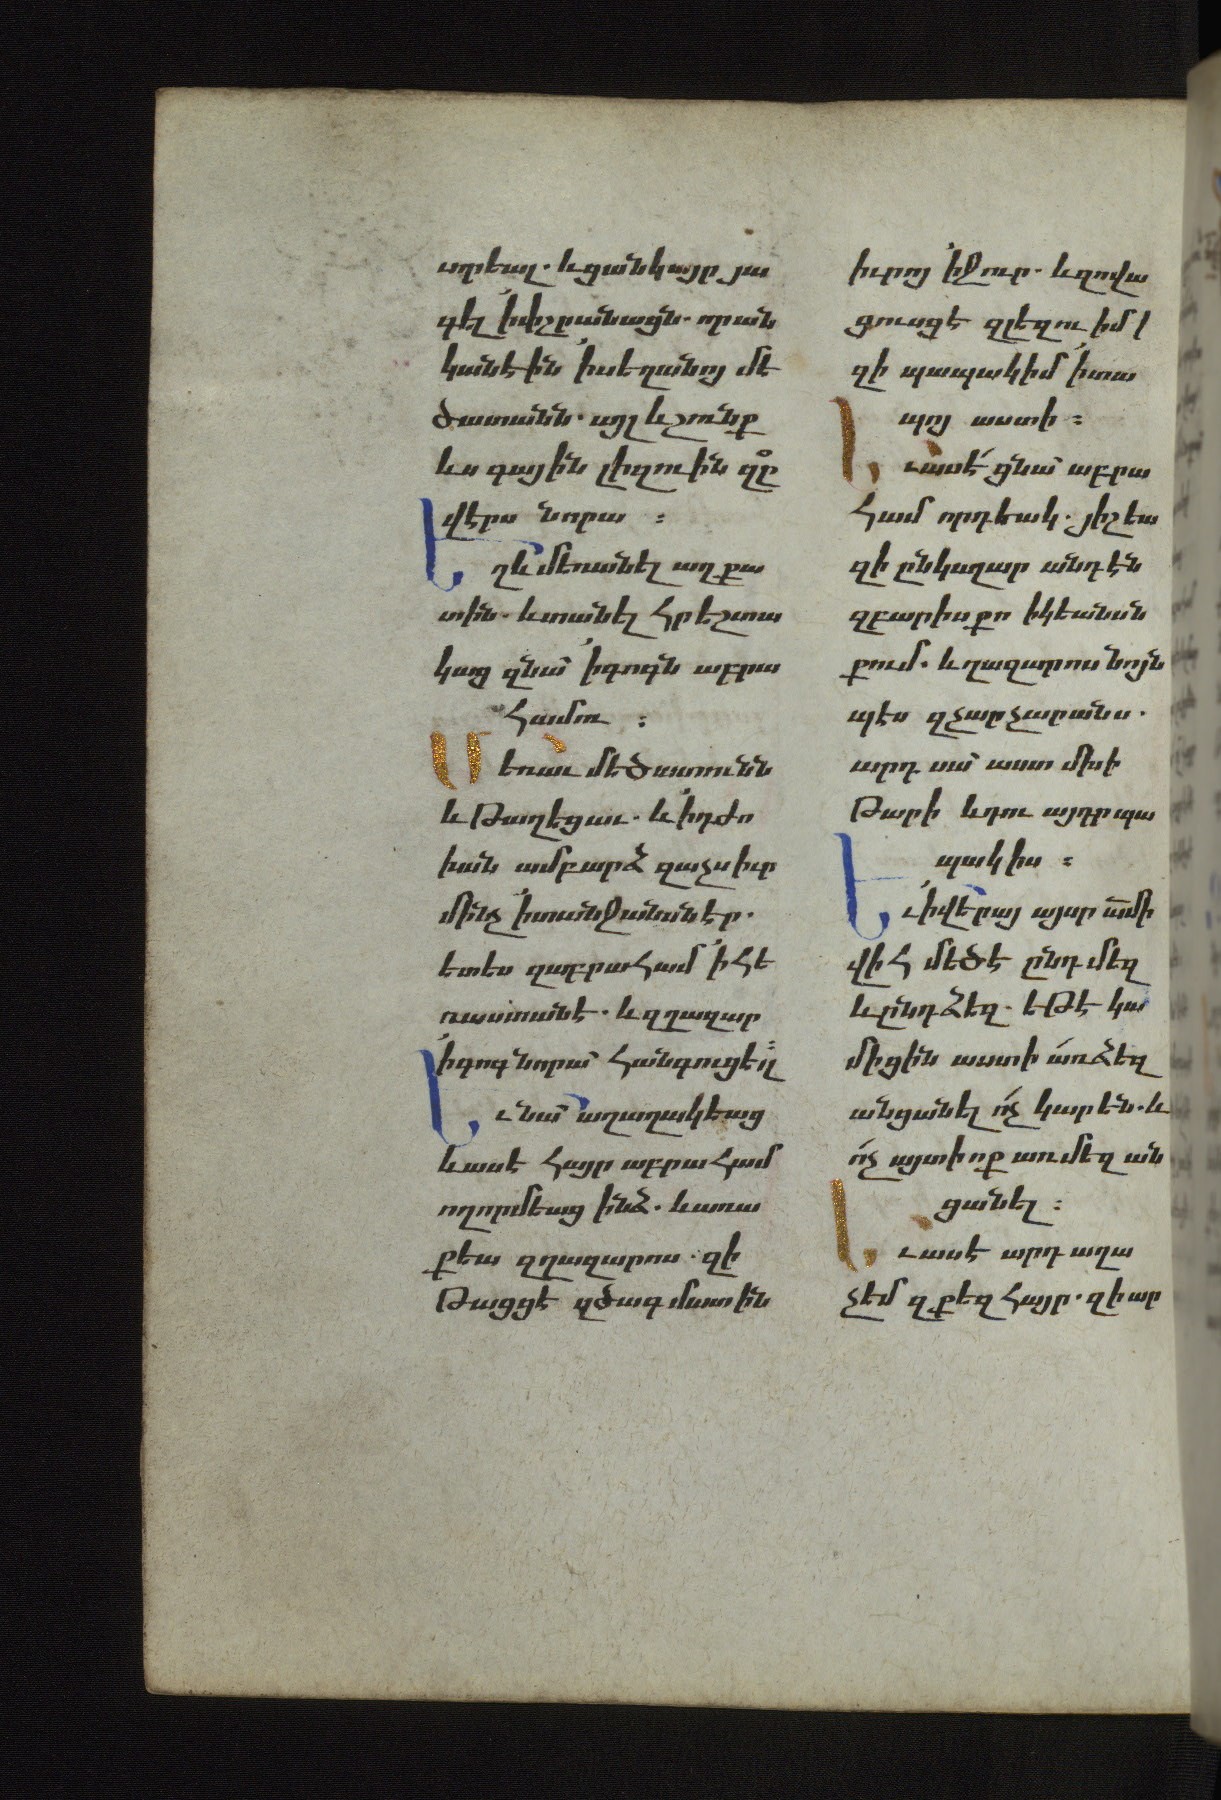 ւղրեալ. և ցանկայր յա
գել ի փշրանացն. որ ան
կանէին ի սեղանոյ մե
ծատանն. այլ և շունք
ևս գային լիզուին զը՟
վէրս նորա ։
Եղև մեռանել աղքա
տին. և տանել հրեշտա
կաց զնա՝ ի գոգն աբրա
համու ։
Մեռաւ մեծատունն
և թաղեցաւ. և ի դժո
խան ամբարձ զաչս իւր
մինչ ի տանջանսն էր.
ետես զաբրահամ ի հե
ռաստանէ. և զղազար
ի գոգ նորա՝ հանգուցել ։
Եւ նա՝ աղաղակեաց
և ասէ հայր աբրահամ
ողորմեաց ինձ. և առա
քեա զղազարոս. զի
թացցէ զծագ մատին
իւրոյ ի ջուր. և զովա
ցուսցէ զլեզու իմ ՛
զի պապակիմ ի տա
պոյ աստի ։
Եւ ասէ ցնա՝ աբրա
համ որդեակ. յիշեա
զի ընկալար անդէն
զբարիս քո ի կեանսն
քում. և ղազարոս նոյն
պէս զչարչարանս.
արդ սա՝ աստ մխի
թարի և դու այդր պա
պակիս ։
Եւ ի վերայ այսր ա՟մի
վիհ մեծ է ընդ մեզ
և ընդ ձեզ. եթէ կա
միցին աստի առ ձեզ
անցանել ոչ կարեն. և
ոչ այտի ոք առ մեզ ան
ցանել ։
Եւ ասէ արդ աղա
չեմ զքեզ հայր. զի ար